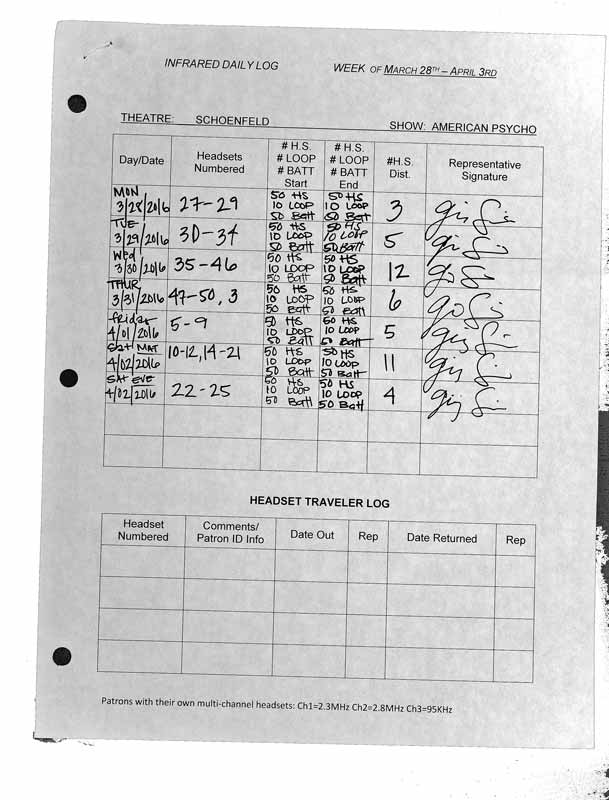 INFRARED DAILY LOG WEEK OF MARCH 28TH – APRIL 3RD
THEATRE: SCHOENFELD
SHOW: AMERICAN PSYCHO
Day/Date
Headsets
Numbered
# H.S.
# LOOP
# BATT
Start
# H.S.
# LOOP
# BATT
End
#H.S.
Dist.
Representative
Signature
MON
3/28/2016
27-29
50 HS
10 LOOP
50 Batt
50 HS
10 LOOP
50 Batt
3
TUE
3/29/2016
30-34
50 HS
10 LOOP
50 Batt
50 HS
10 LOOP
50 Batt
5
Wed
3/30/2016
35-46
50 HS
10 LOOP
50 Batt
50 HS
10 LOOP
50 Batt
12
THUR
3/31/2016
47-50, 3
50 HS
10 LOOP
50 Batt
50 HS
10 LOOP
50 Batt
6
Friday
4/01/2016
5-9
50 HS
10 LOOP
50 Batt
50 HS
10 LOOP
50 Batt
5
Sat MAT
4/02/2016
10-12, 14-21
50 HS
10 LOOP
50 Batt
50 HS
10 LOOP
50 Batt
11
SAT EVE
4/02/2016
22-25
50 HS
10 LOOP
50 Batt
50 HS
10 LOOP
50 Batt
4
HEADSET TRAVELER LOG
Headset
Numbered
Comments/
Patron ID Info
Date Out
Rep
Date Returned
Rep
Patrons with their own multi-channel headsets: Ch1=2.3MHz Ch2=2.8MHz Ch3=95KHz